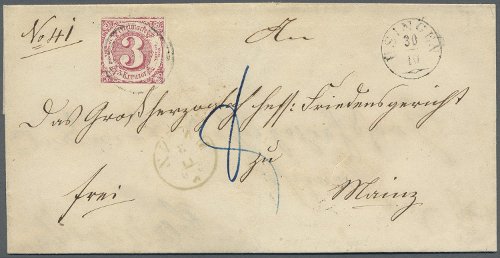 No 41
3
Kreuzer
An
USINGEN
30
10
Das Großherzoglich hess: Friedensgericht
8
zu
frei
Mainz